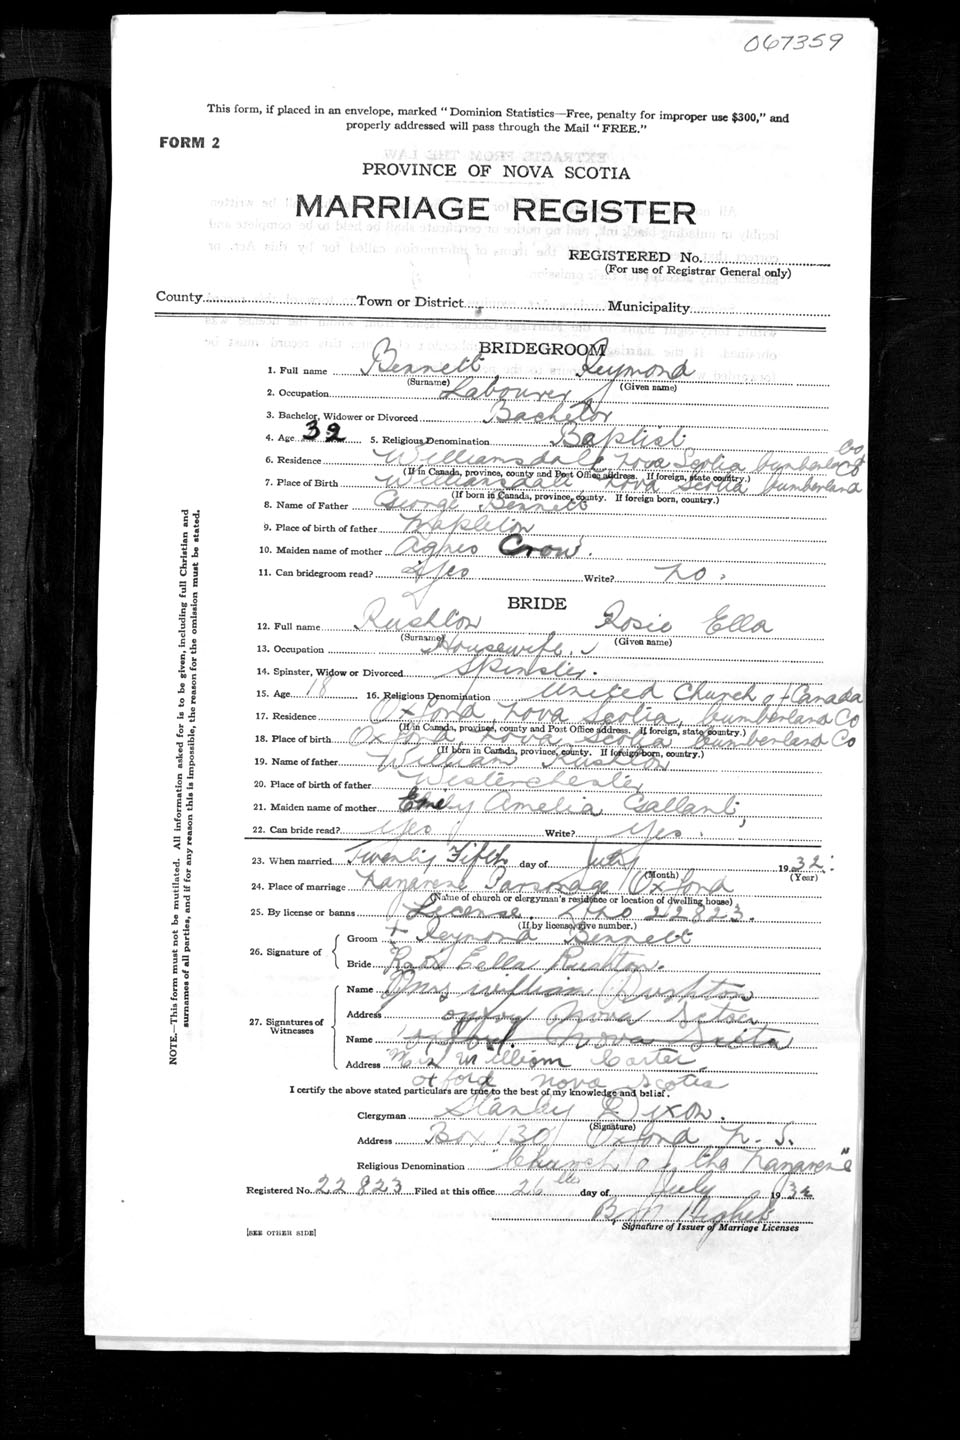 067359
This form, if placed in an envelope, marked "Dominion Statistics—Free, penalty for improper use $300," and
properly addressed will pass through the Mail "FREE."
FORM 2
PROVINCE OF NOVA SCOTIA
MARRIAGE REGISTER
REGISTERED No.
(For use of Registrar General only)
County Town or District Municipality
BRIDEGROOM
1. Full name Bennett Reymond
(Surname) (Given name)
2. Occupation Labourer
3. Bachelor, Widower or Divorced Bachelor
4. Age 32 5. Religious Denomination Baptist
6. Residence Williamsdale Nova Scotia Cumberland Co
(If in Canada, province, county and Post Office address. If foreign, state country.)
7. Place of Birth Williamsdale Nova Scotia Cumberland Co
(If born in Canada, province, county. If foreign born, country.)
8. Name of Father George Bennett
9. Place of birth of father Mapleton
10. Maiden name of mother Agnes Crow.
11. Can bridegroom read? Yes Write? No.
BRIDE
12. Full name Rushton Rosie Ella
(Surname) (Given name)
13. Occupation Housewife.
14. Spinster, Widow or Divorced Spinster.
15. Age 18 16. Religious Denomination United Church of Canada
17. Residence Oxford, Nova Scotia, Cumberland Co
(If in Canada, province, county and Post Office address. If foreign, state country.)
18. Place of birth Oxford Nova Scotia Cumberland Co
(If born in Canada, province, county. If foreign born, country.)
19. Name of father William Rushton
20. Place of birth of father Westerchester
21. Maiden name of mother Emily Amelia Gallant
22. Can bride read? Yes Write? Yes.
23. When married Twenty Fifth day of July 1932
(Month) (Year)
24. Place of marriage Nazarene Parsonage Oxford
(Name of church or clergyman's residence or location of dwelling house)
25. By license or banns License. No 22823.
(If by license, give number.)
26. Signature of
Groom + Reymond Bennett
Bride Rosie Eella Rushton.
27. Signatures of Witnesses
Name Mrs William Rushton
Address Nova
Name Nova
Address Mrs William Carter
Oxford Nova Scotia
I certify the above stated particulars are true to the best of my knowledge and belief.
Clergyman Stanley Dixon.
(Signature)
Address Box 130 Oxford N. S.
Religious Denomination "Church of the Nazarene"
Registered No. 22823 Filed at this office 26th day of July 1932
B. M. Hughes
Signature of Issuer of Marriage Licenses
[SEE OTHER SIDE]
NOTE.—This form must not be mutilated. All information asked for is to be given, including full Christian and
surnames of all parties, and if for any reason this is impossible, the reason for the omission must be stated.